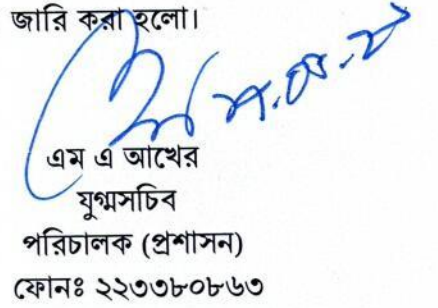 জারি করা হলো।
এম এ আখের
যুগ্মসচিব
পরিচালক (প্রশাসন)
ফোনঃ ২২৩৩৮০৮৬৩